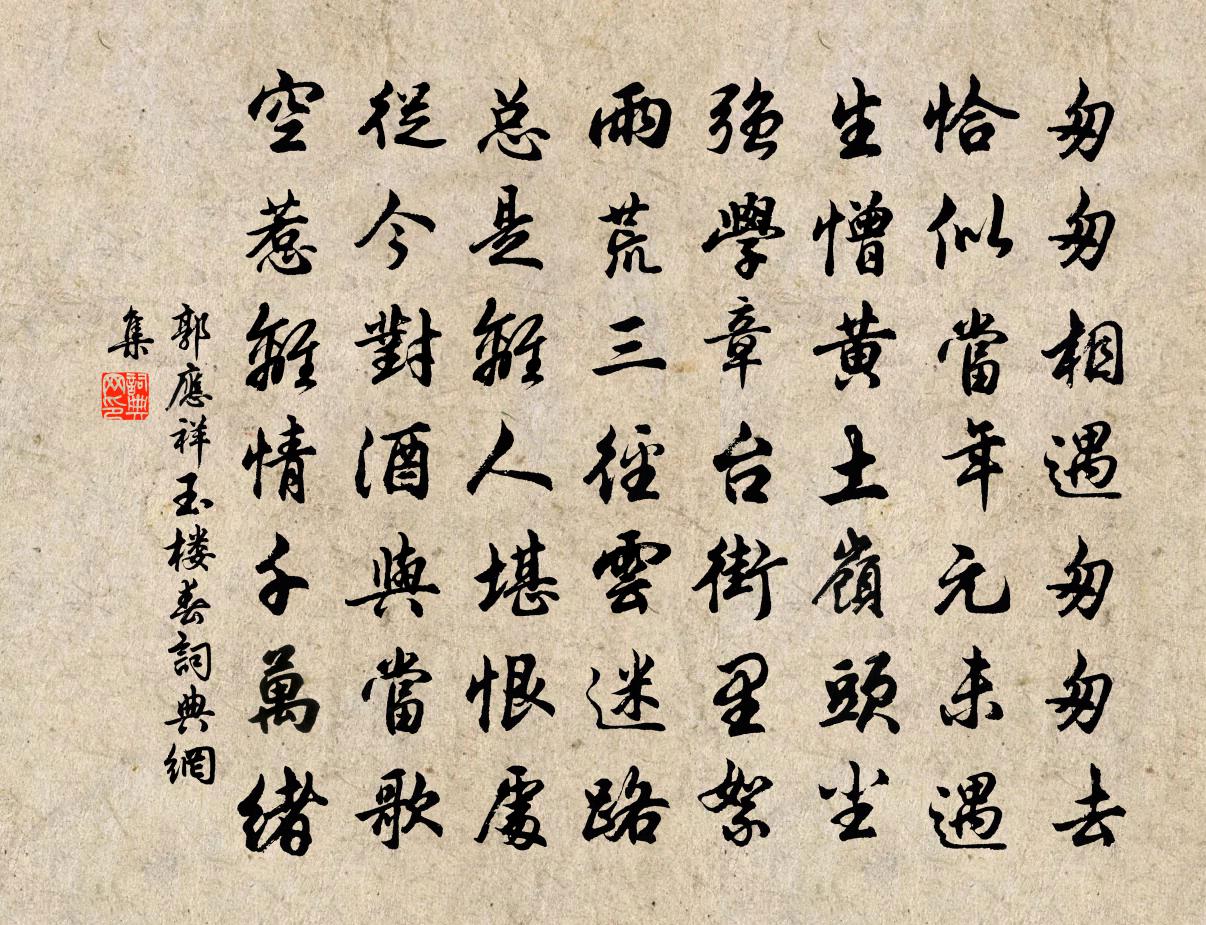 匆匆相遇匆匆去
恰似當年元未遇
生憎黄土嶺頭尘
强學章台街里絮
雨荒三徑雲迷路
总是離人堪恨處
從今對酒與當歌
空惹離情千萬緒
郭應祥玉楼春詞典網
集
詞典
网印